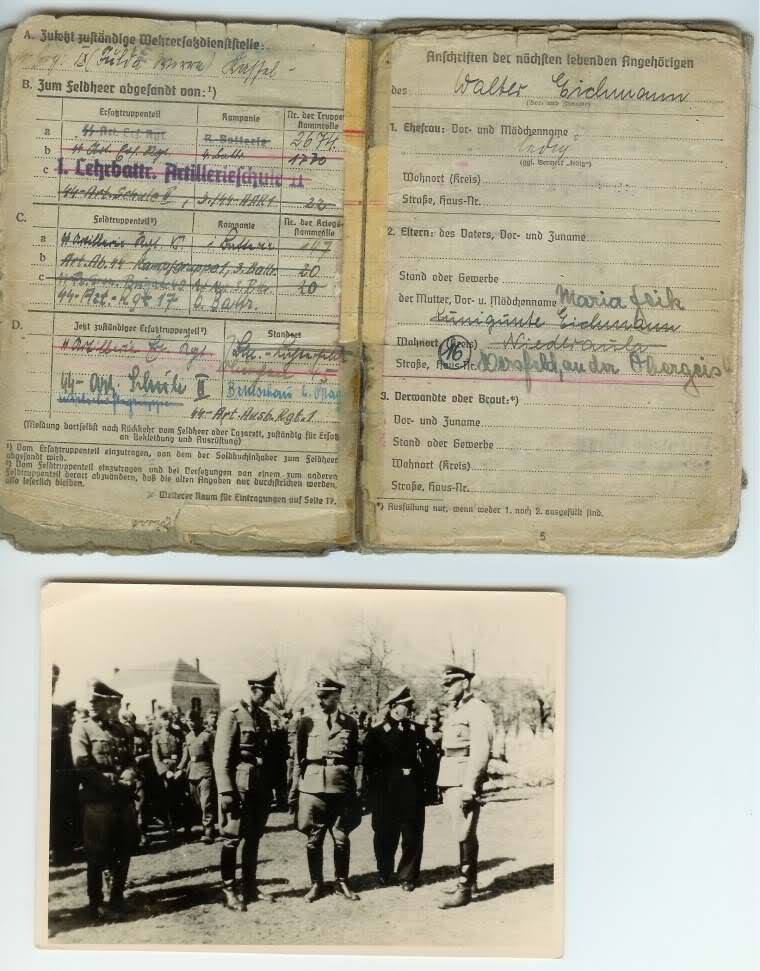 A. Zuletzt zuständige Wehrersatzdienststelle:
(Fulda Werra) Kassel -
B. Zum Feldheer abgesandt von:¹)
Ersatztruppenteil Kompanie Nr. der Truppenstammrolle
a ϟϟ Art. Ers. Rgt. Batterie 2674.
b ϟϟ Art. Ers. Rgt. 1770
c 1. Lehrbattr. Artillerieschule II
ϟϟ-Art. Schule II, 22
C. Feldtruppenteil²) Kompanie Nr. der Kriegsstammrolle
a ϟϟ Artillerie Rgt. 147
b Art. Ab. ϟϟ Kampfgruppe 1, 3. Battr. 20
c 20
ϟϟ-Art.-Rgt 17 6. Battr.
D. Jetzt zuständiger Ersatztruppenteil²) Standort
ϟϟ Artillerie Rgt
ϟϟ-Art. Schule II Beneschau b. Prag
ϟϟ-Art. Ausb. Rgt. 1
(Meldung dortselbst nach Rückkehr vom Feldheer oder Lazarett, zuständig für Ersatz
an Bekleidung und Ausrüstung)
¹) Vom Ersatztruppenteil einzutragen, von dem der Soldbuchinhaber zum Feldheer
abgesandt wird.
²) Vom Feldtruppenteil einzutragen und bei Versetzungen von einem zum anderen
Feldtruppenteil derart abzuändern, daß die alten Angaben nur durchstrichen werden,
also leserlich bleiben.
Weiterer Raum für Eintragungen auf Seite 17.
Anschriften der nächsten lebenden Angehörigen
des Walter Eichmann
(Vor- und Zuname)
1. Ehefrau: Vor- und Mädchenname
ledig
(ggf. Vermerk „ledig“)
Wohnort (Kreis)
Straße, Haus-Nr.
2. Eltern: des Vaters, Vor- und Zuname
Stand oder Gewerbe
der Mutter, Vor- u. Mädchenname Maria
Kunigunte Eichmann
Wohnort (Kreis) Niederaula
Straße, Haus-Nr. Hersfeld, an der Obergeis 4
3. Verwandte oder Braut:*)
Vor- und Zuname
Stand oder Gewerbe
Wohnort (Kreis)
Straße, Haus-Nr.
*) Ausfüllung nur, wenn weder 1. noch 2. ausgefüllt sind.
5